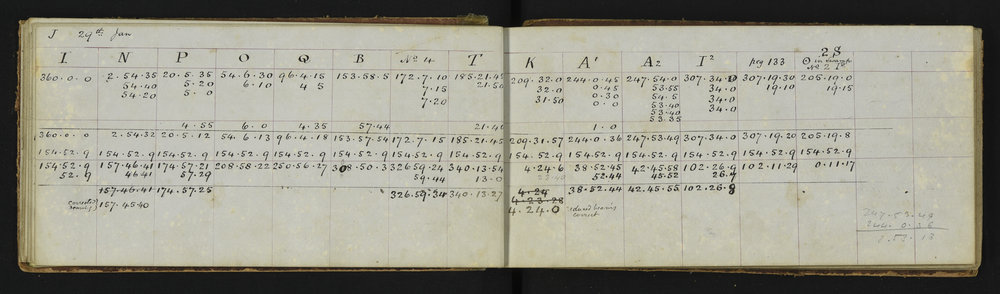 J 29th Jan
I N P O Q B No 4 T K A' A2 I2 peg 133 28
No 27
360.0.0 2.54.35 20.5.35 54.6.30 96.4.15 153.58.5 172.7.10 185.21.45 209.32.0 244.0.45 247.54.0 307.34.0 307.19.30 205.19.0
54.40 5.20 6.10 4 5 7.15 21.50 32.0 0.45 53.55 34.0 19.10 19.15
54.20 5.0 7.20 31.50 0.30 54.5 34.0
0.0 53.40 34.0
53.40
4.55 6.0 4.35 57.44 21.40 1.0 53.35
360.0.0 2.54.32 20.5.12 54.6.13 96.4.18 153.57.54 172.7.15 185.21.45 209.31.57 244.0.36 247.53.49 307.34.0 307.19.20 205.19.8
154.52.9 154.52.9 154.52.9 154.52.9 154.52.9 154.52.9 154.52.9 154.52.9 154.52.9 154.52.9 154.52.9 154.52.9 154.52.9 154.52.9
154.52.9 157.46.41 174.57.21 208.58.22 250.56.27 308.50.3 326.59.24 340.13.54 4.24.6 38.52.45 42.45.58 102.26.9 102.11.29 0.11.17
52.9 46.41 57.29 59.44 13.0 52.44 45.52 26.7
157.46.41 174.57.25 326.59.34 340.13.27 4.24 38.52.44 42.45.55 102.26.8
4.23.28
corrected 157.45.40 4.24.0 reduced bearing
correct
247.53.49
244.0.36
3.53.13